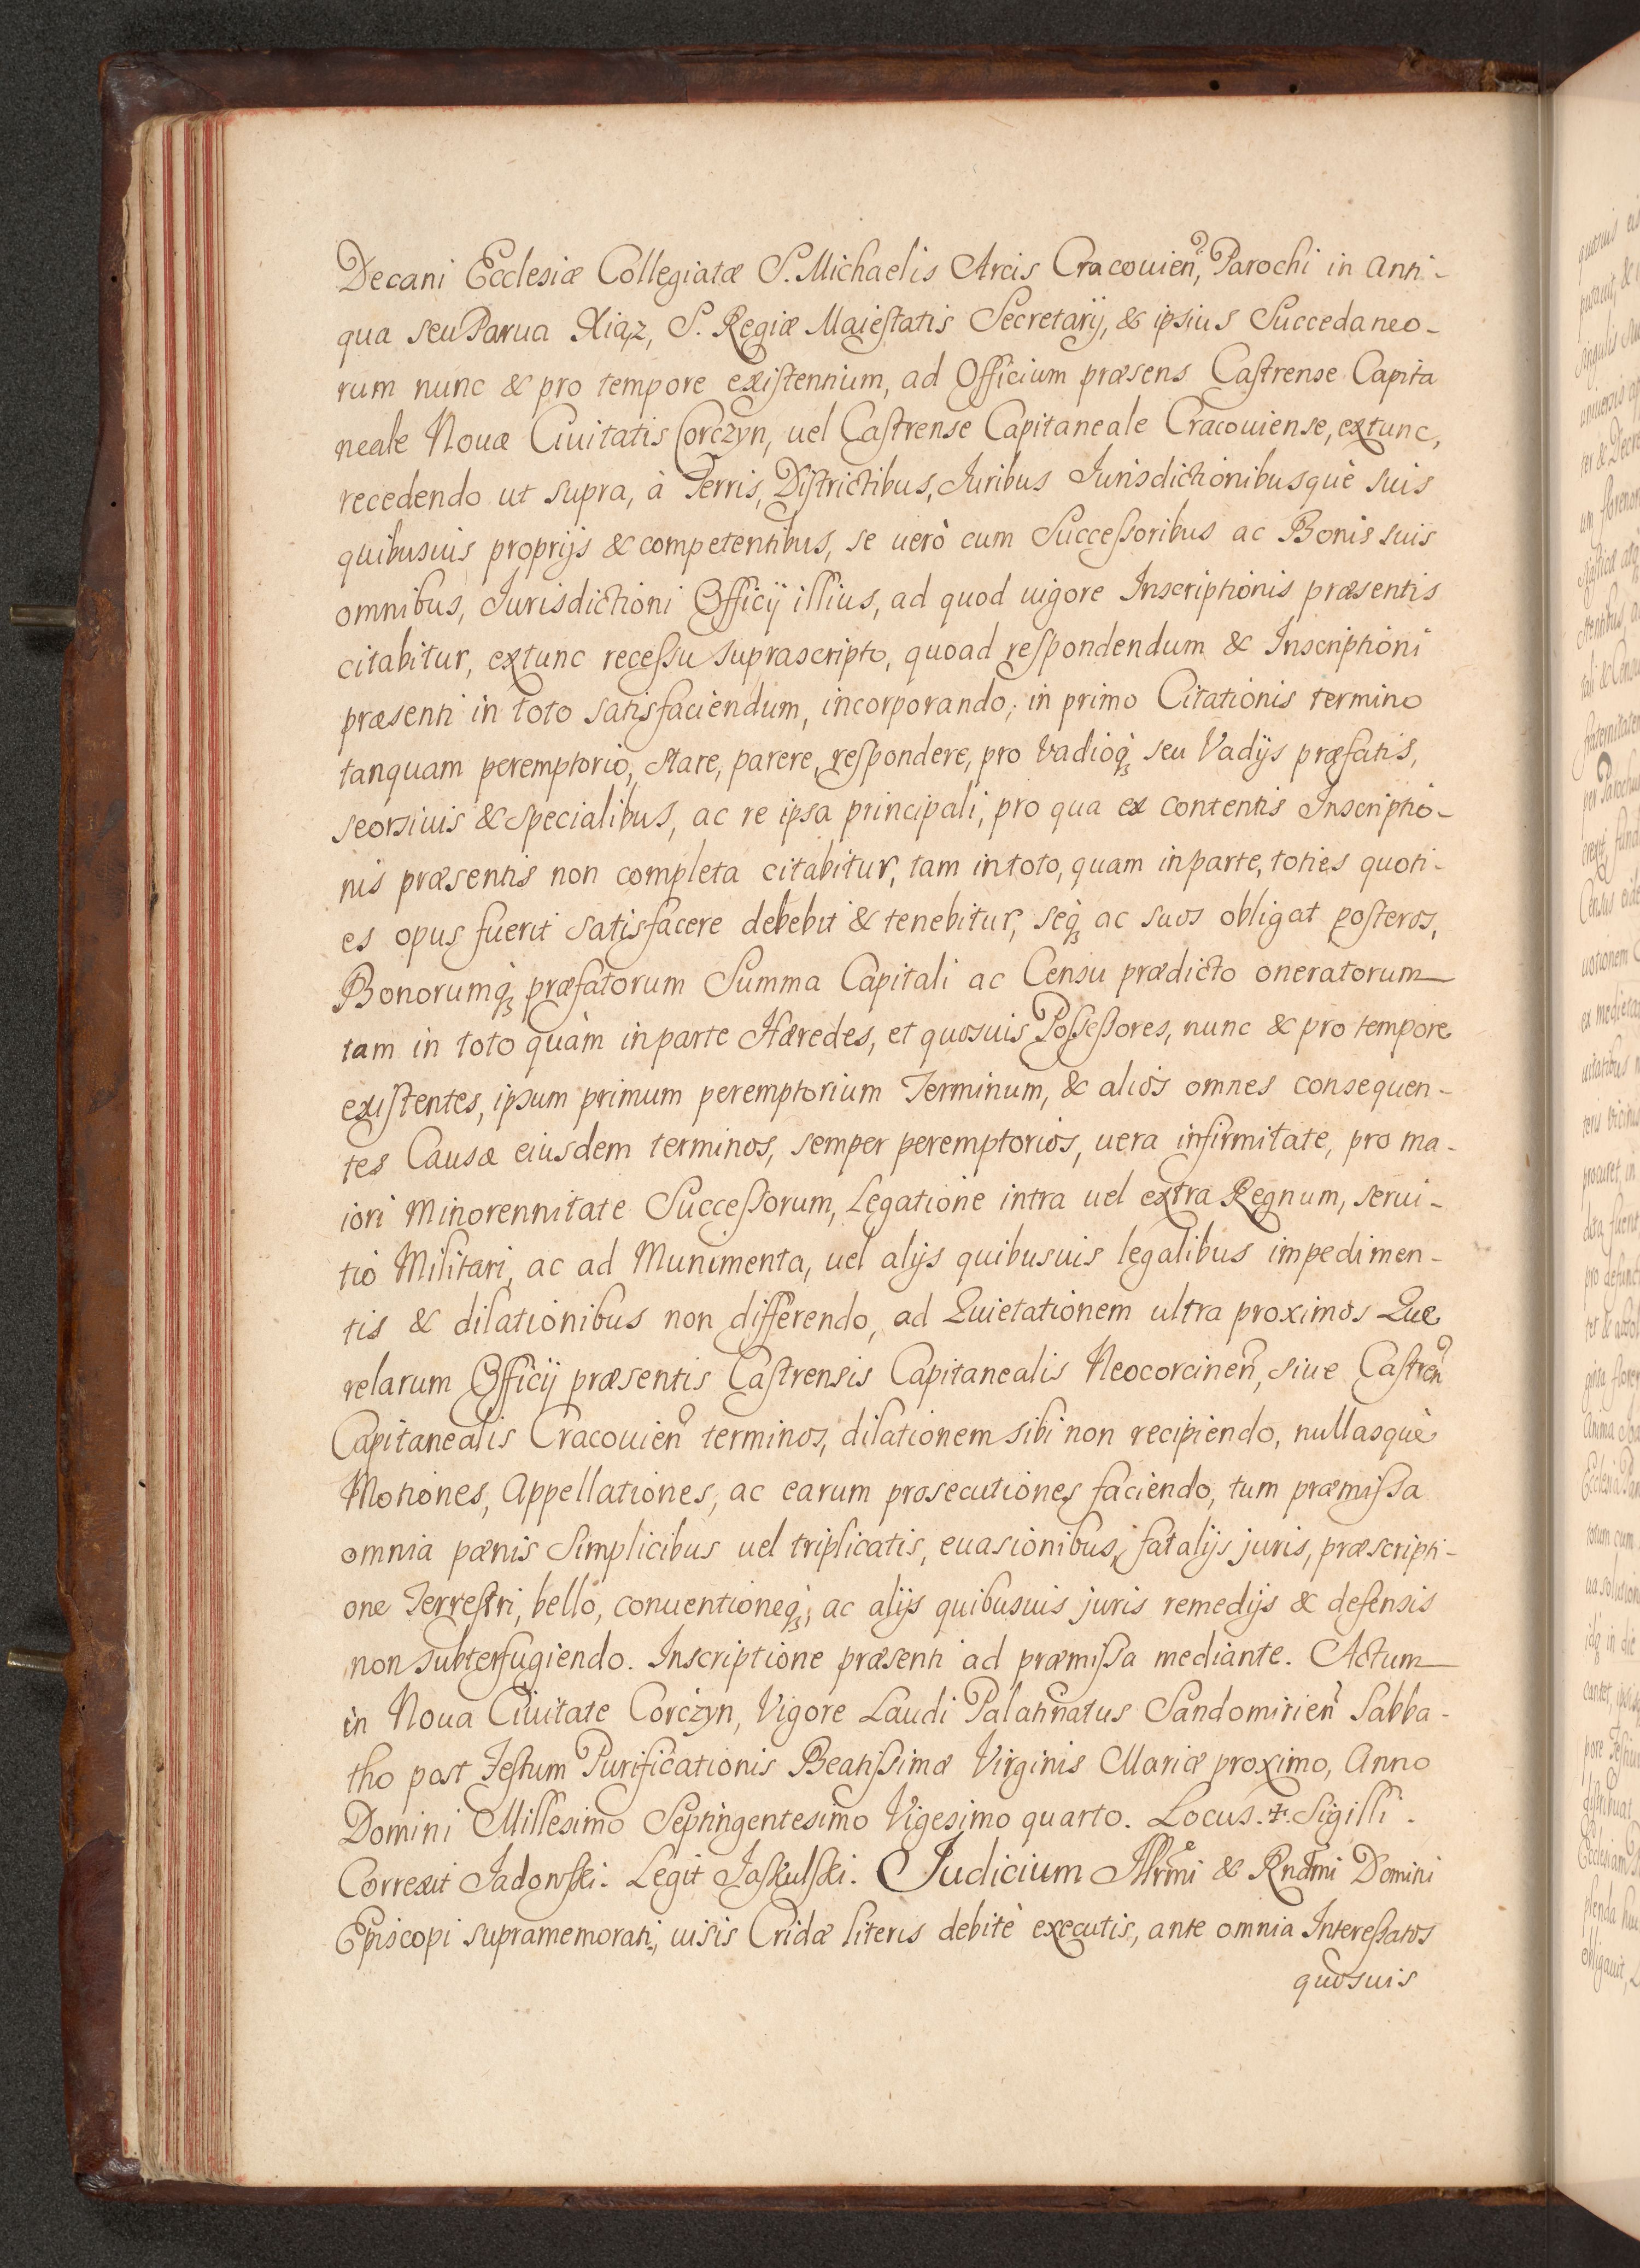 Decani Ecclesiæ Collegiatæ S. Michaelis Arcis Cracouien̄, Parochi in Anti-
qua seu Parua Xiąz, S. Regiæ Maiestatis Secretarij, & ipsius Succedaneo-
rum nunc & pro tempore existentium, ad Officium præsens Castrense Capita
neale Nouæ Ciuitatis Corczyn, uel Castrense Capitaneale Cracouiense, extunc,
recedendo ut supra, à Terris, Districtibus, Juribus Jurisdictionibusquè suis
quibusuis proprijs & competentibus, se uerò cum Successoribus ac Bonis suis
omnibus, Jurisdictioni Officij illius, ad quod uigore Inscriptionis præsentis
citabitur, extunc recessu suprascripto, quoad respondendum & Inscriptioni
præsenti in toto satisfaciendum, incorporando; in primo Citationis termino
tanquam peremptorio, stare, parere, respondere, pro Vadioq₃ seu Vadijs præfatis,
seorsiuis & specialibus, ac re ipsa principali, pro qua ex contentis Inscriptio-
nis præsentis non completa citabitur, tam in toto, quam in parte, toties quoti-
es opus fuerit satisfacere debebit & tenebitur, seq₃ ac suos obligat posteros,
Bonorumq₃ præfatorum Summa Capitali ac Censu prædicto oneratorum
tam in toto quàm in parte Hæredes, et quosuis Possessores, nunc & pro tempore
existentes, ipsum primum peremptorium Terminum, & alios omnes consequen-
tes Causæ eiusdem terminos, semper peremptorios, uera infirmitate, pro ma-
iori Minorennitate Successorum, Legatione intra uel extra Regnum, serui-
tio Militari, ac ad Munimenta, uel alijs quibusuis legalibus impedimen-
tis & dilationibus non differendo, ad Quietationem ultra proximos Que
relarum Officij præsentis Castrensis Capitanealis Neocorcinen̄, siue Castren̄
Capitanealis Cracouien̄ terminos, dilationem sibi non recipiendo, nullasquè
Motiones, Appellationes, ac earum prosecutiones faciendo, tum præmissa
omnia pœnis simplicibus uel triplicatis, euasionibus, fatalijs juris, præscripti-
one Terrestri, bello, conuentioneq₃, ac alijs quibusuis juris remedijs & defensis
non subterfugiendo. Inscriptione præsenti ad præmissa mediante. Actum
in Noua Ciuitate Corczyn, Vigore Laudi Palatinatus Sandomirien̄ Sabba-
tho post Festum Purificationis Beatissimæ Virginis Mariæ proximo, Anno
Domini Millesimo Septingentesimo Vigesimo quarto. Locus. ✝. Sigilli.
Correxit Jadowski. Legit Jaskulski. Judicium Illrmi & Rndmi Domini
Episcopi supramemorati, uisis Cridæ literis debitè executis, ante omnia Interessatos
quosuis